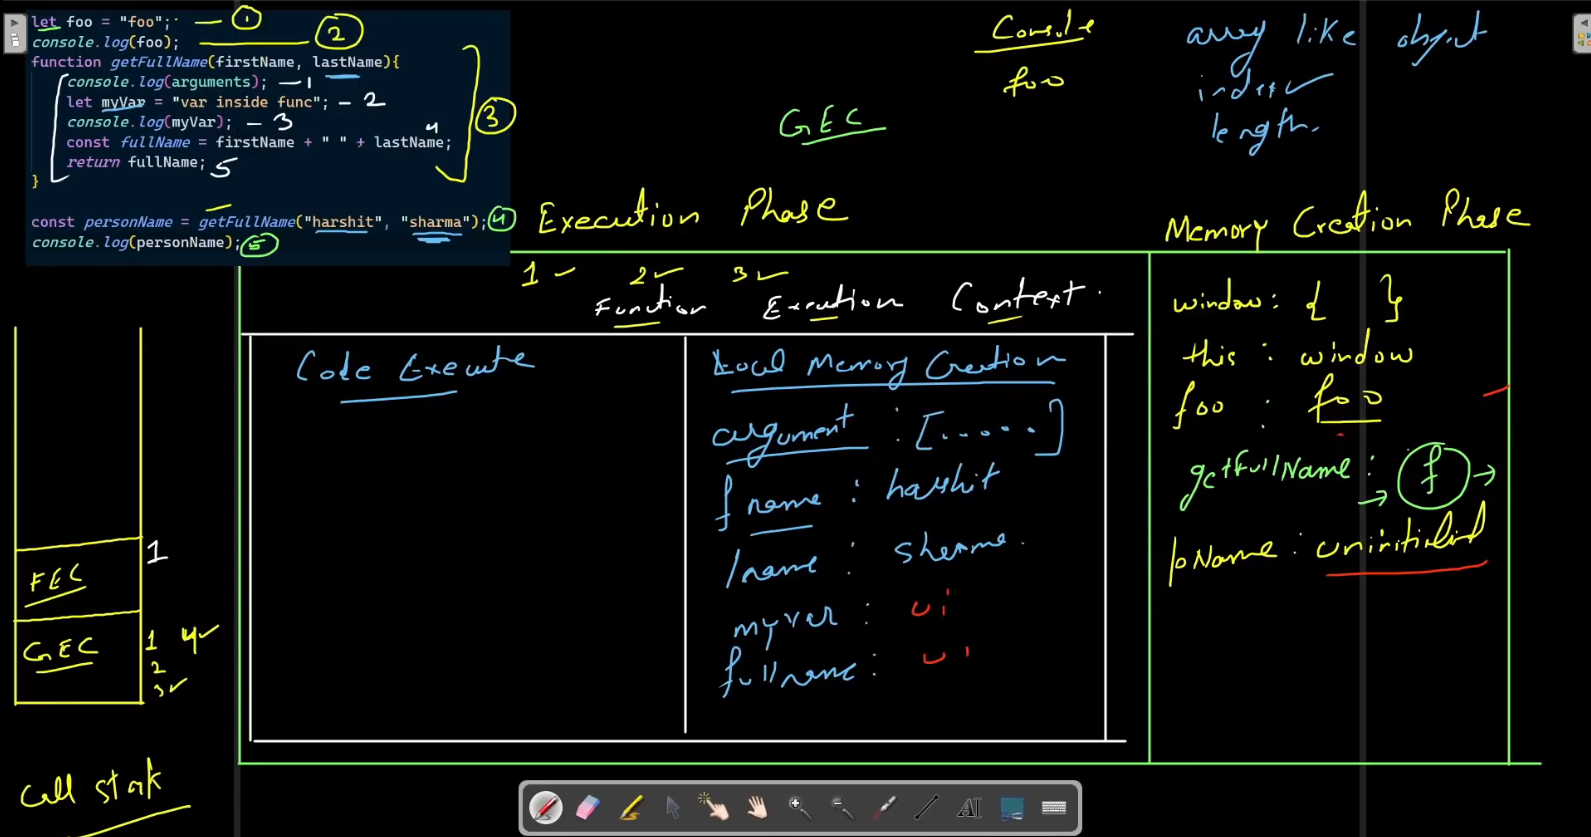 let foo = "foo"; — 1
console.log(foo); — 2
function getFullName(firstName, lastName){
console.log(arguments); — 1
let myVar = "var inside func"; — 2
console.log(myVar); — 3
const fullName = firstName + " " + lastName; 4
return fullName; 5
}
3
const personName = getFullName("harshit", "sharma"); 4
console.log(personName); 5
Console
foo
GEC
array like object
index ✓
length.
Execution Phase
1 ✓ 2 ✓ 3 ✓
Function Execution Context.
Code Execute
Local Memory Creation
argument : [......]
fname : harshit
lname : sharma.
myvar : ui
fullname : ui
Memory Creation Phase
window : { }
this : window
foo : foo
getFullName : f →
pName : uninitialized
FEC 1
GEC 1 4 ✓
2
3 ✓
Call stack
AI